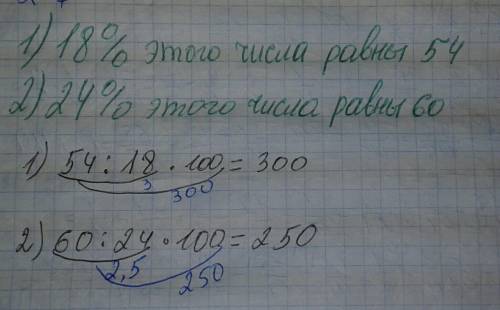 1) 18% этого числа равны 54
2) 24% этого числа равны 60
1) 54 : 18 · 100 = 300
3
300
2) 60 : 24 · 100 = 250
2,5
250